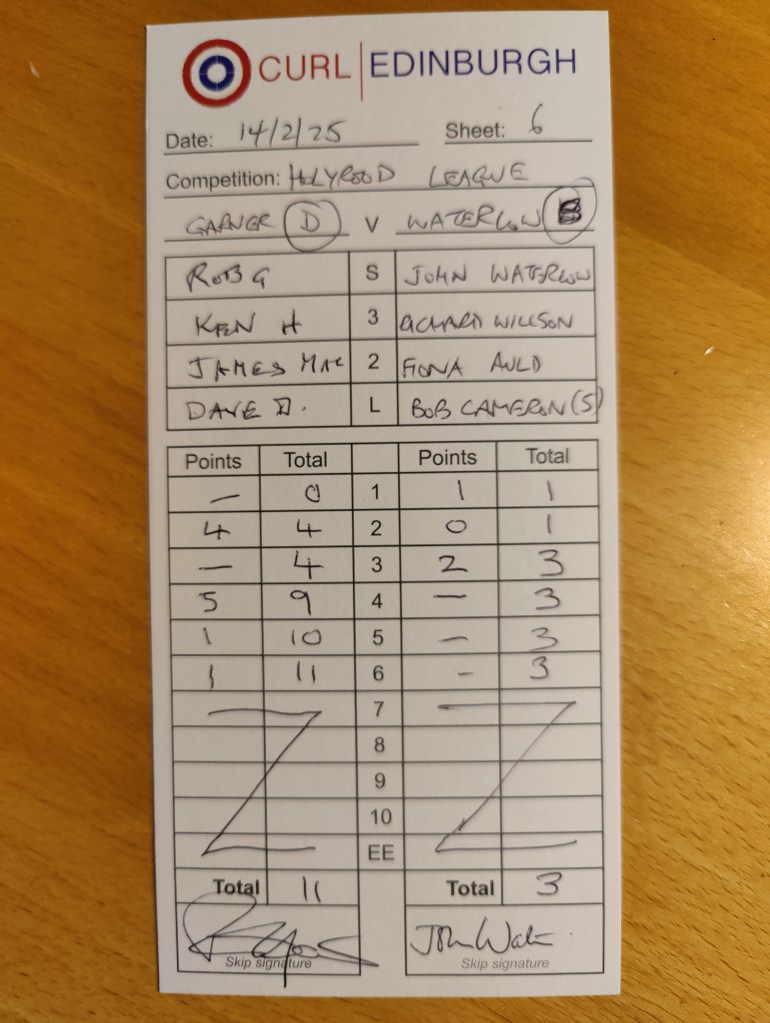 CURL | EDINBURGH
Date: 14/2/25 Sheet: 6
Competition: HOLYROOD LEAGUE
GARNER D V WATERLOW
ROB G S JOHN WATERLOW
KEN H 3 RICHARD WILLSON
JAMES MAC 2 FIONA AULD
DAVE L BOB CAMERON (S)
Points Total Points Total
— 0 1 1 1
4 4 2 0 1
— 4 3 2 3
5 9 4 — 3
1 10 5 — 3
1 11 6 - 3
7
8
9
10
EE
Total 11 Total 3
John Wat
Skip signature Skip signature